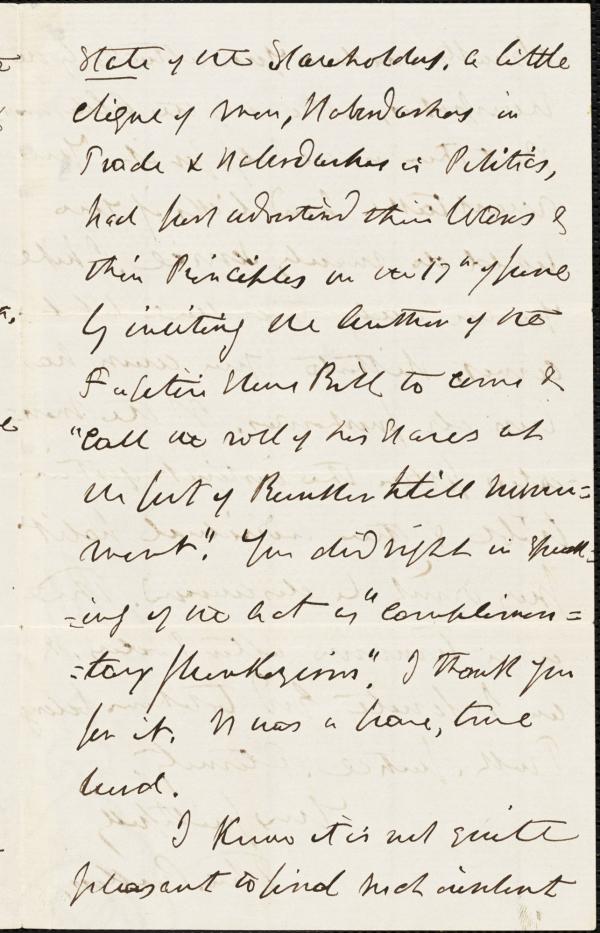 State of the Slaveholders. A little
clique of men, Haberdashers in
Trade & Haberdashers in Politics,
had just advertised their Wares &
their Principles on the 17th of June
by inviting the Author of the
Fugitive Slave Bill to come &
"Call the roll of his Slaves at
the foot of Bunker Hill Monu=
ment". You did right in speak=
=ing of the act as "complimen=
=tary flunkeyism". I thank you
for it. It was a brave, true
word.
I know it is not quite
pleasant to find such insolent